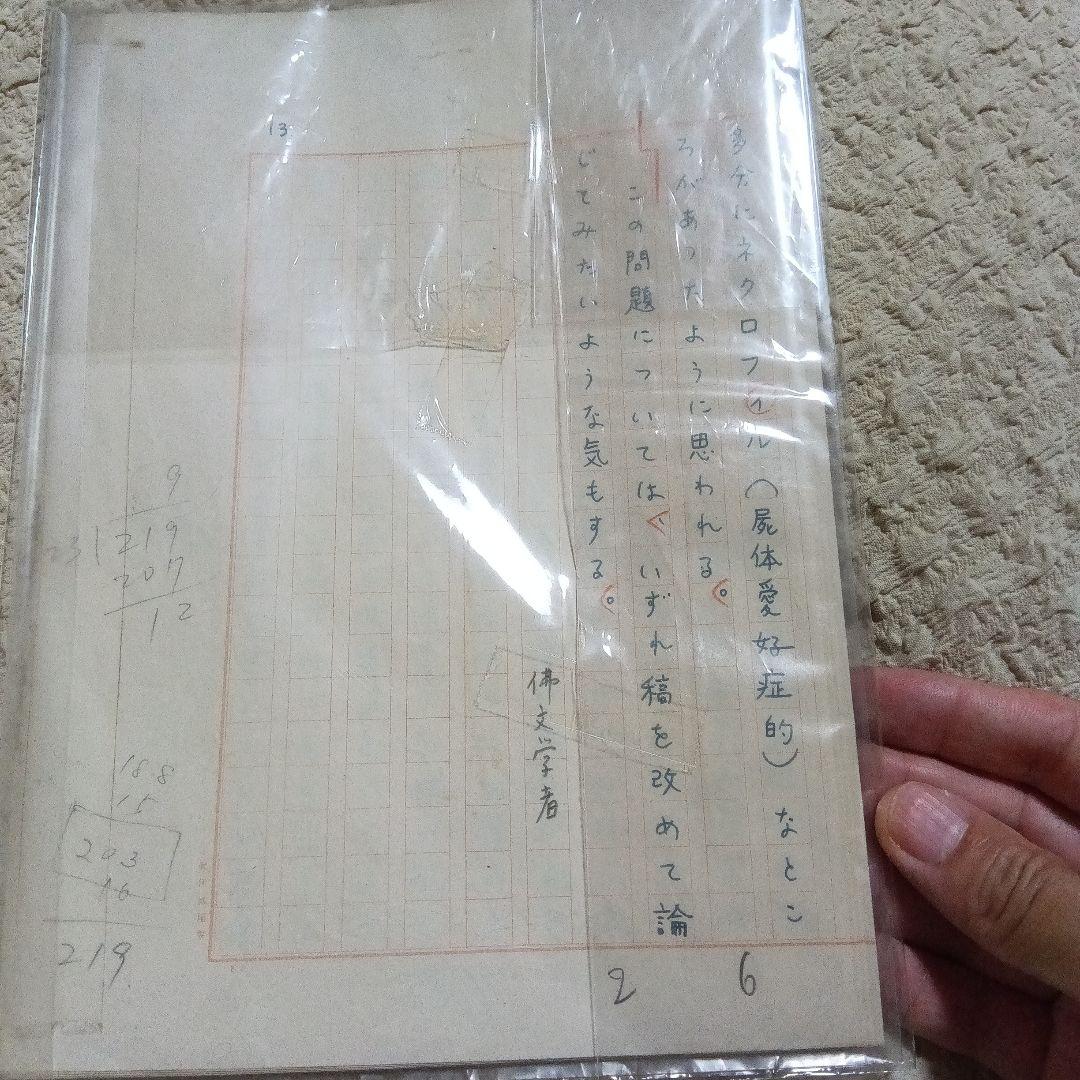 13
多分にネクロフィル（屍体愛好症的）なとこ
ろがあったように思われる。
この問題については、いずれ稿を改めて論
じてみたいような気もする。
佛文学者
9
23
219
207
12
188
15
203
16
219
2
6